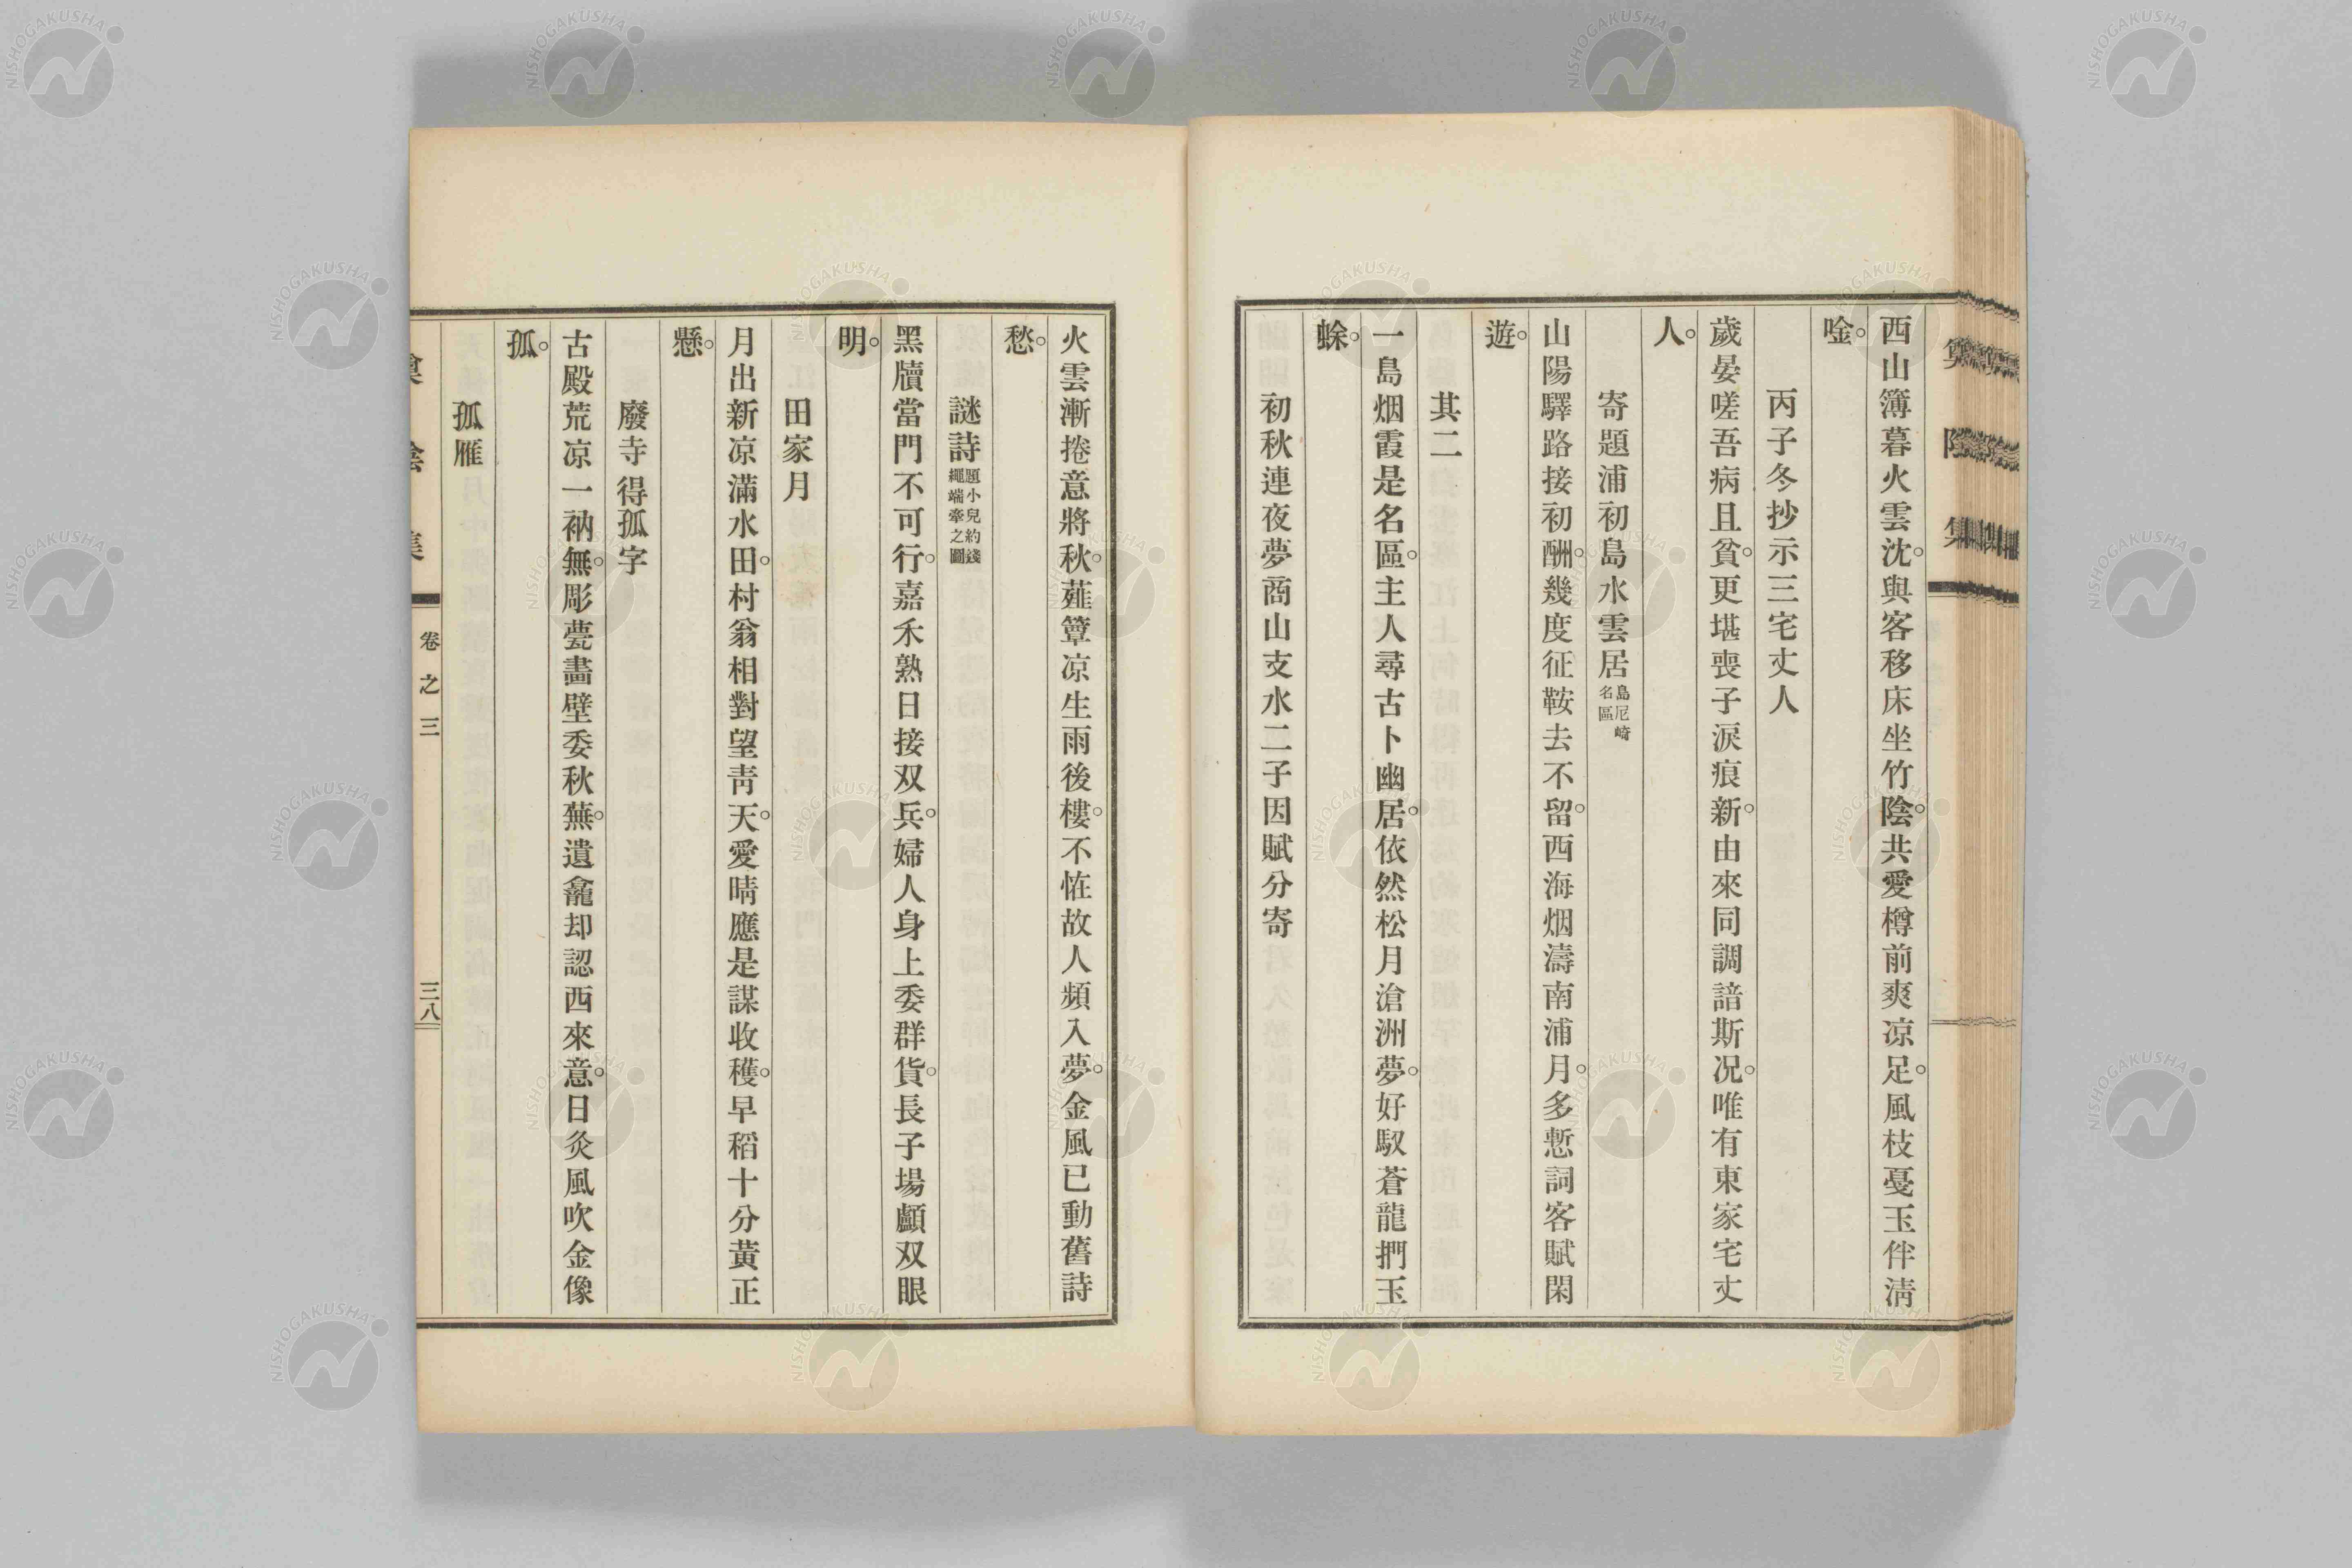 西山簿暮火雲沈。與客移床坐竹陰。共愛樽前爽凉足。風枝戞玉伴淸
唫。
丙子冬抄示三宅丈人
歲晏嗟吾病且貧。更堪喪子淚痕新。由來同調諳斯况。唯有東家宅丈
人。
寄題浦初島水雲居 島尼崎名區
山陽驛路接初酬。幾度征鞍去不留。西海烟濤南浦月。多慙詞客賦閑
遊。
其二
一島烟霞是名區。主人尋古卜幽居。依然松月滄洲夢。好馭蒼龍捫玉
蜍。
初秋連夜夢商山支水二子因賦分寄
火雲漸捲意將秋。薤簟凉生雨後樓。不恠故人頻入夢。金風已動舊詩
愁。
謎詩 題小兒約錢繩端牽之圖
黑牘當門不可行。嘉禾熟日接双兵。婦人身上委群貨。長子場顱双眼
明。
田家月
月出新凉滿水田。村翁相對望靑天。愛晴應是謀收穫。早稻十分黃正
懸。
廢寺得孤字
古殿荒凉一衲無。彫甍畵壁委秋蕪。遺龕却認西來意。日灸風吹金像
孤。
孤雁
卷之三
三八
NISHOGAKUSHA